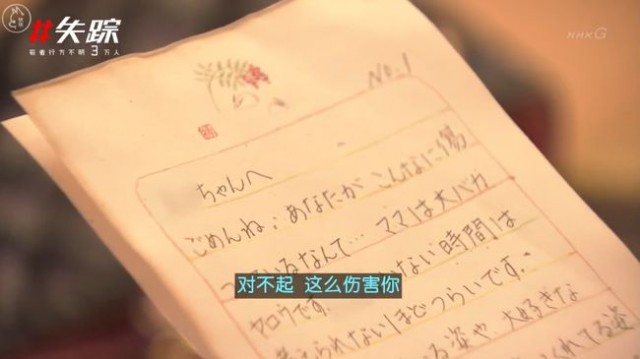 #失踪
若者行方不明3万人
NHK G
No.1
ちゃんへ
ごめんね。あなたが こんなに傷
いるなんて… ママは大バカ
ヤロウです。 ない時間は
られないほどつらいです。
る姿や、大好きな
れてる姿
对不起 这么伤害你